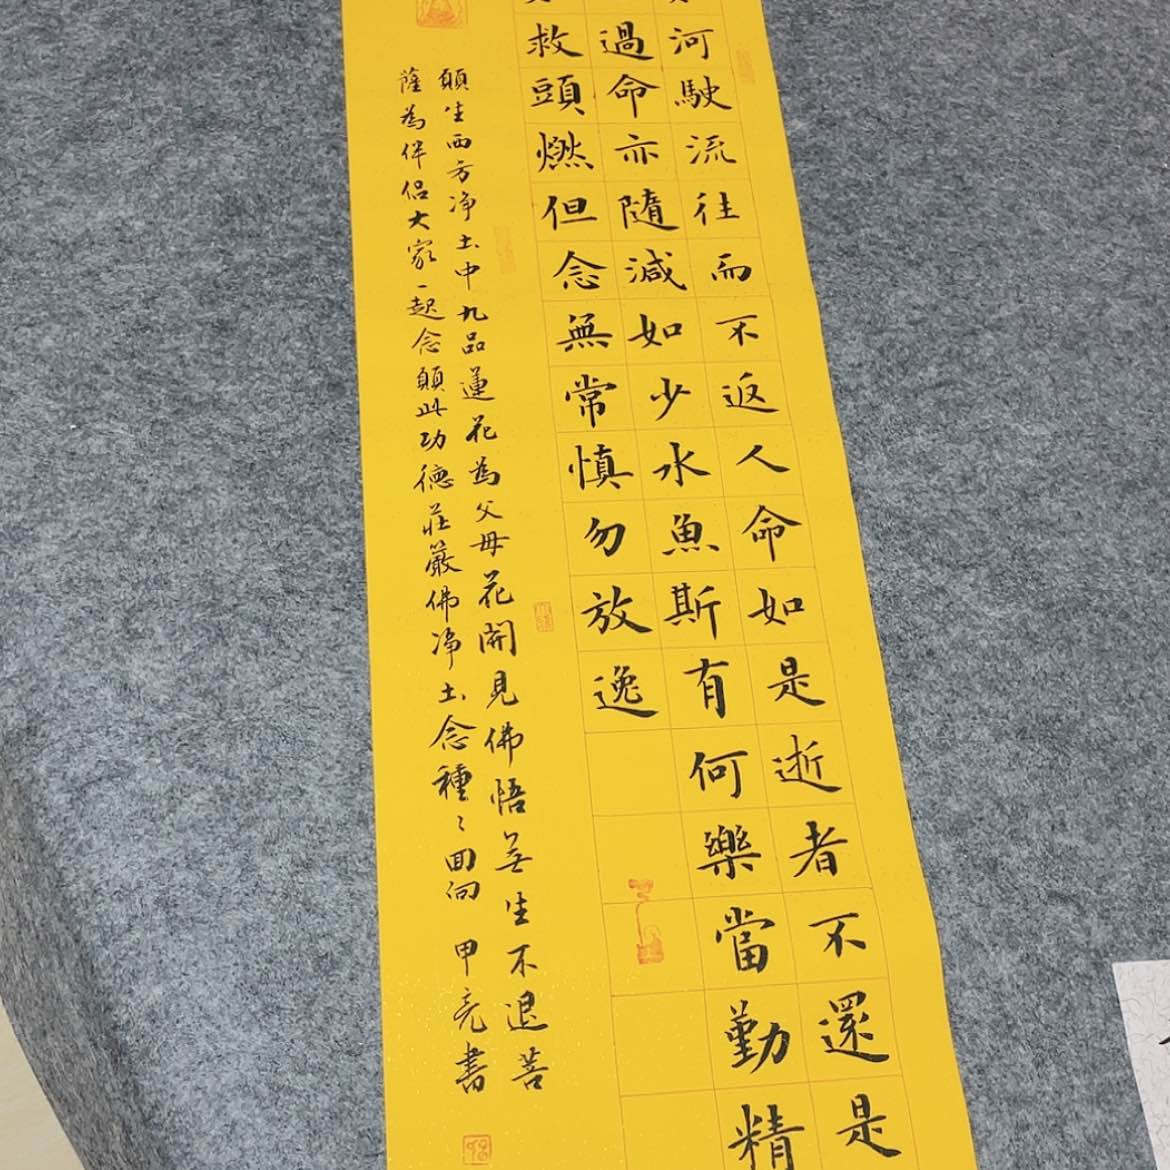 河駛流往而不返人命如是逝者不還是
過命亦隨減如少水魚斯有何樂當勤精
救頭燃但念無常慎勿放逸
願生西方淨土中九品蓮花為父母花開見佛悟無生不退菩
薩為伴侣大家一起念願此功德莊嚴佛淨土念種〻回向 甲亮書